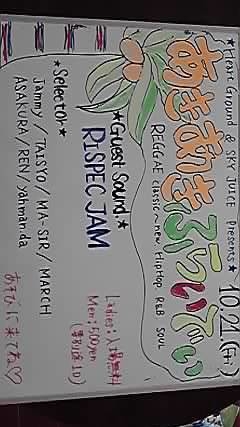 ★Heart Ground & SKY JUICE Presents★
10.21.(Fri)
あきあきふらいでい
REGGAE classic~new HipHop R&B SOUL
★Guest Sound★
RISPEC JAM
★Selector★
Jammy / TAISYO / MIA-SIR / MARCH
ASAKURA / REN / yahman-da
Ladies: 入場無料
Men: 500yen
(要別途1D)
あそびに来てね♡